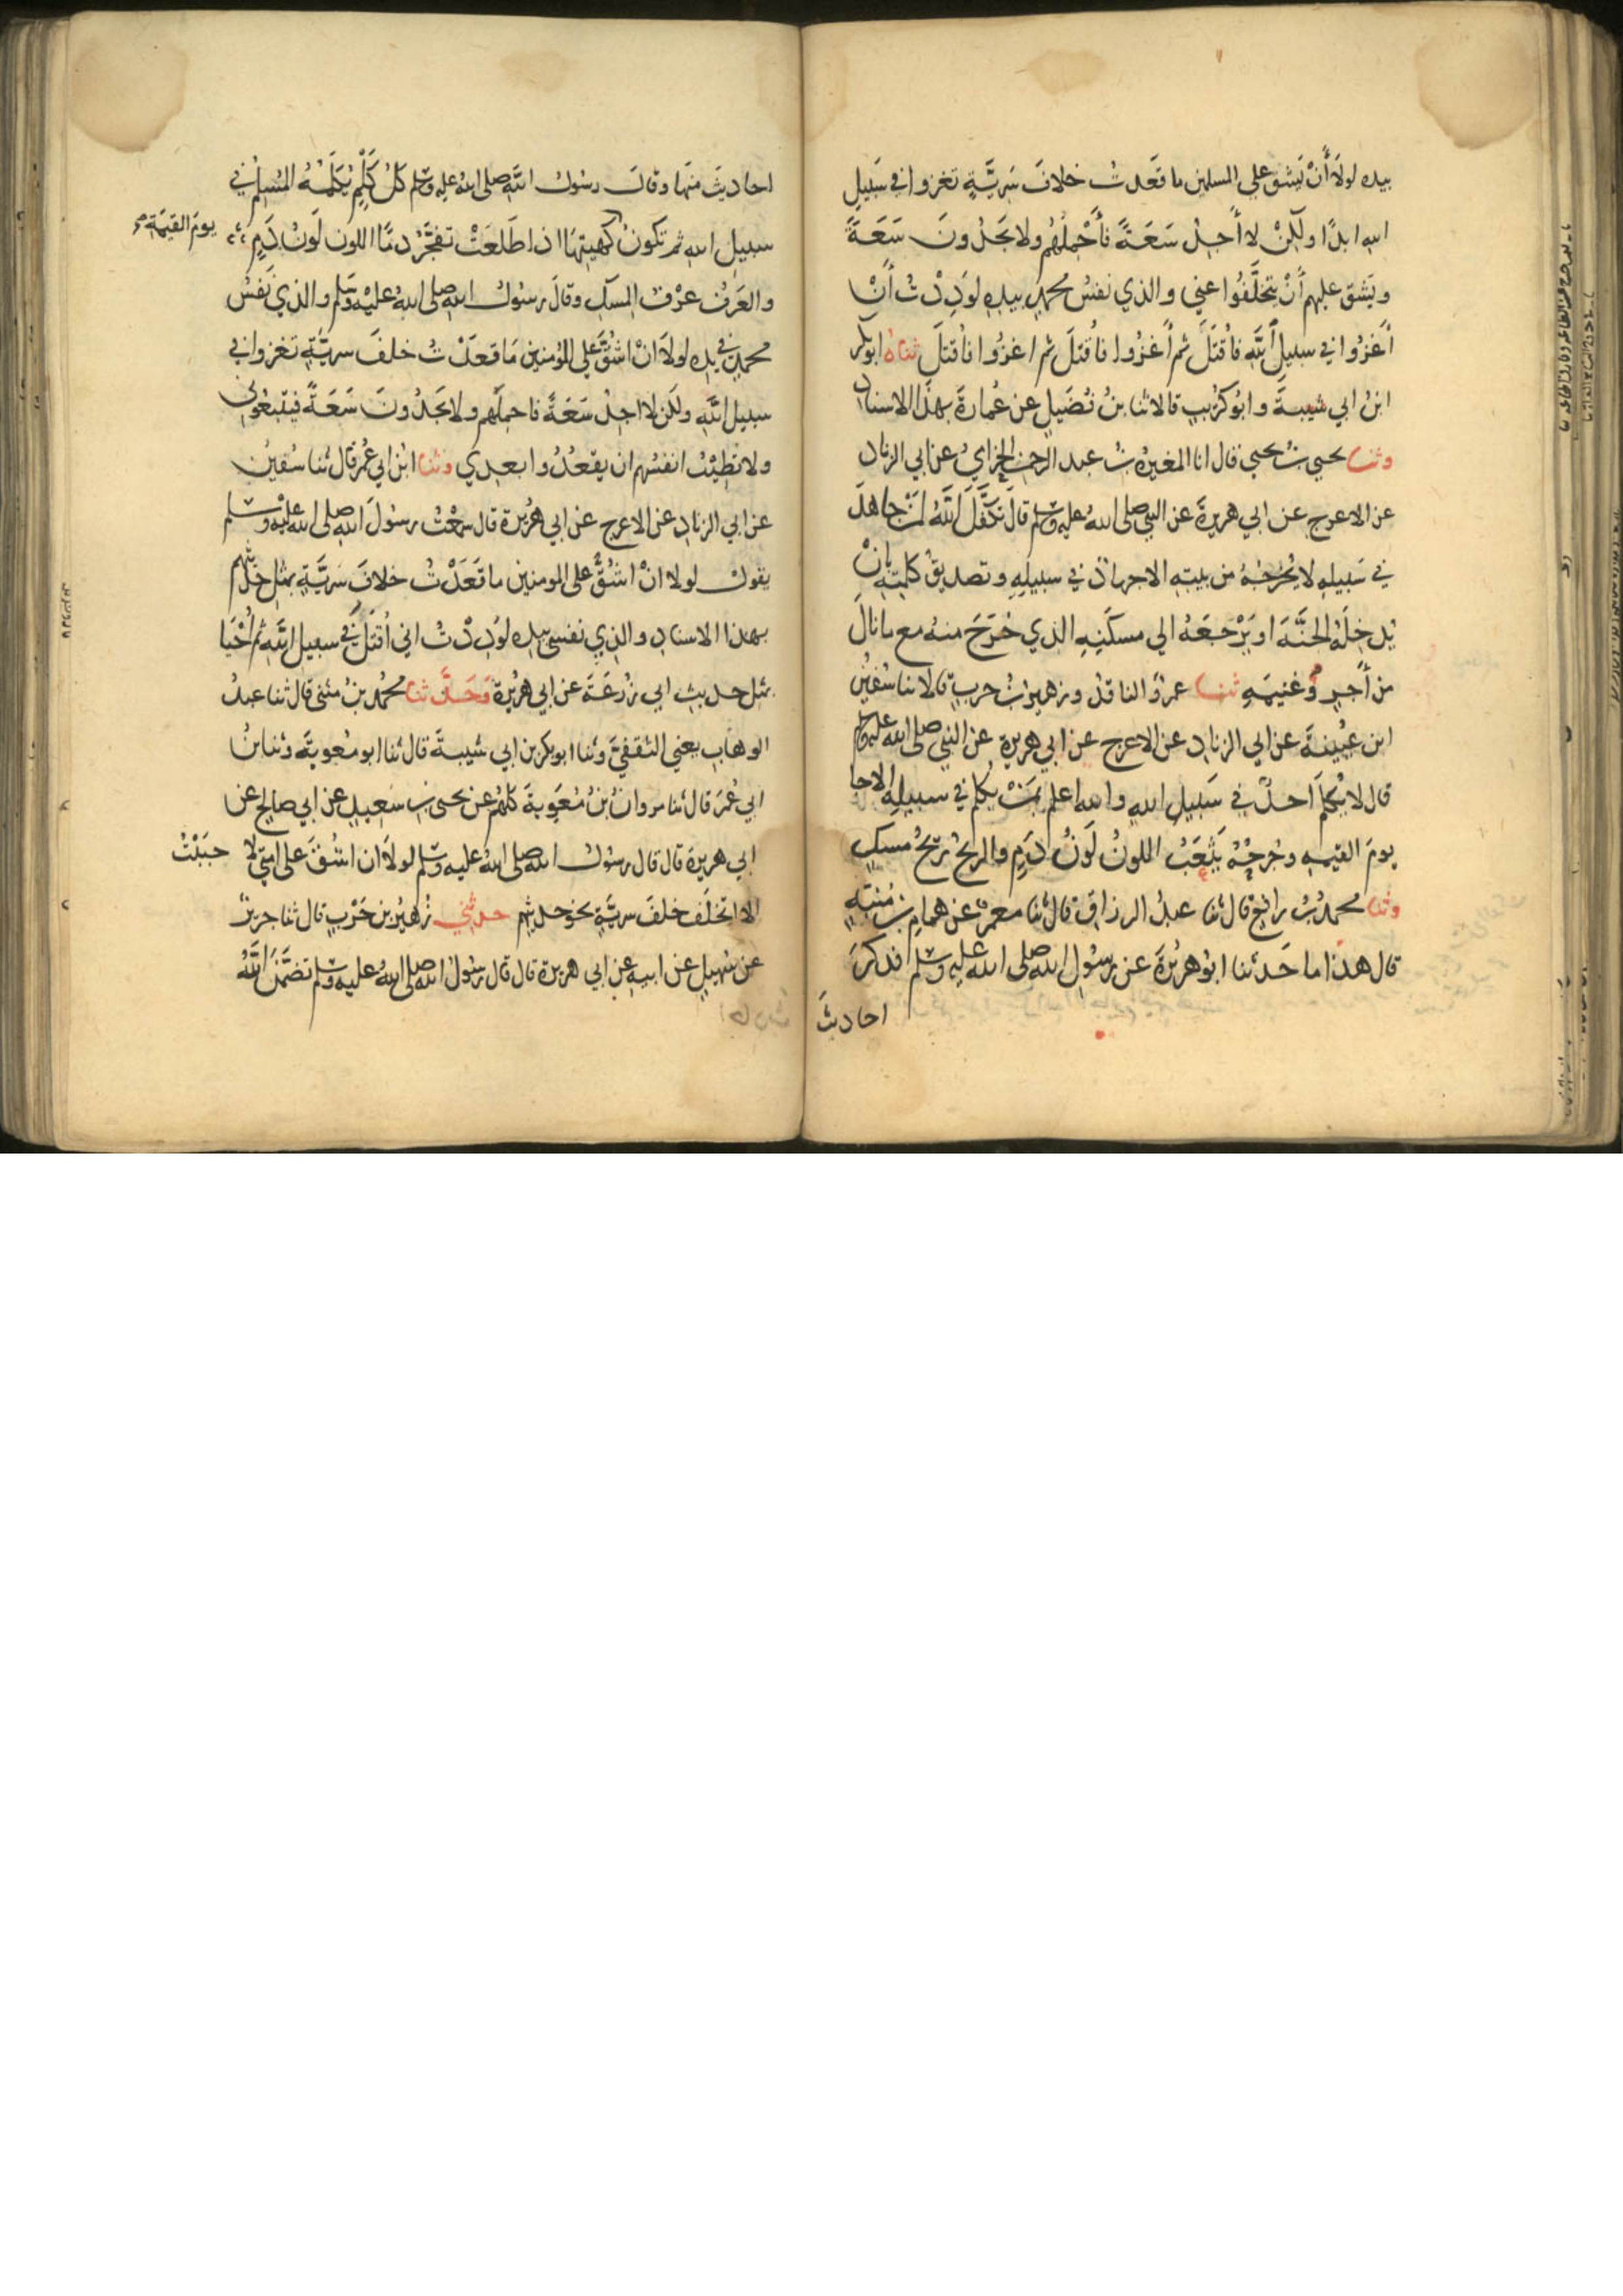 بيده لولا أن يشق على المسلمين ما قعدت خلاف سرية تغزوا في سبيل
الله ابدا ولكن لا أجد سعة فأحملهم ولا يجدون سعة
ويشق عليهم أن يتخلفوا عني والذي نفس محمد بيده لوددت أن
أغزوا في سبيل الله فأقتل ثم أغزوا فأقتل ثم اغزوا فأقتل ثناه ابو بكر
ابن ابي شيبة وابو كريب قالا ثنا بن فضيل عن عمارة بهذا الاسناد
وثنا يحيى بن يحيى قال انا المغيرة بن عبد الرحمن الحزامي عن ابي الزناد
عن الاعرج عن ابي هريرة عن النبي صلى الله عليه وسلم قال تكفل الله لمن جاهد
في سبيله لا يخرجه من بيته الا جهاد في سبيله وتصديق كلمته بان
يدخله الجنة او يرجعه الى مسكنه الذي خرج منه مع ما نال
من أجر وغنيمة ثنا عمرو الناقد وزهير بن حرب قالا ثنا سفين
ابن عيينة عن ابي الزناد عن الاعرج عن ابي هريرة عن النبي صلى الله عليه وسلم
قال لا يكلم احد في سبيل الله والله اعلم بمن يكلم في سبيله الا جا
يوم القيمه وجرحه يثعب اللون لون دم والريح ريح مسك
وثنا محمد بن رافع قال ثنا عبد الرزاق قال ثنا معمر عن همام بن منبه
قال هذا ما حدثنا ابو هريرة عن رسول الله صلى الله عليه وسلم فذكر
احاديث
احاديث منها وقال رسول الله صلى الله عليه وسلم كل كلم يكلمه المسلم في
سبيل الله ثم تكون كهيئتها اذا طعنت تفجر دما اللون لون دم
يوم القيمة
والعرف عرف المسك وقال رسول الله صلى الله عليه وسلم والذي نفس
محمد في يده لولا ان اشق على المؤمنين ما قعدت خلف سرية تغزوا في
سبيل الله ولكن لا اجد سعة فاحملهم ولا يجدون سعة فيتبعوني
ولا تطيب انفسهم ان يقعدوا بعدي وثنا ابن ابي عمر قال ثنا سفين
عن ابي الزناد عن الاعرج عن ابي هريرة قال سمعت رسول الله صلى الله عليه وسلم
يقول لولا ان اشق على المومنين ما قعدت خلاف سرية بمثل حديثهم
بهذا الاسناد والذي نفسي بيده لوددت اني أقتل في سبيل الله ثم أحيا
بمثل حديث ابي زرعة عن ابي هريرة وحدثنا محمد بن مثنى قال ثنا عبد
الوهاب يعني الثقفي وثنا ابو بكر بن ابي شيبة قال ثنا ابو معوية وثنا بن
ابي عمر قال ثنا مروان بن معوية كلهم عن يحيى بن سعيد عن ابي صالح عن
ابي هريرة قال قال رسول الله صلى الله عليه وسلم لولا ان اشق على امتي لا حببت
الا اتخلف خلف سرية نحو حديثهم حدثني زهير بن حرب قال ثنا جرير
عن سهيل عن ابيه عن ابي هريرة قال قال رسول الله صلى الله عليه وسلم تضمن الله